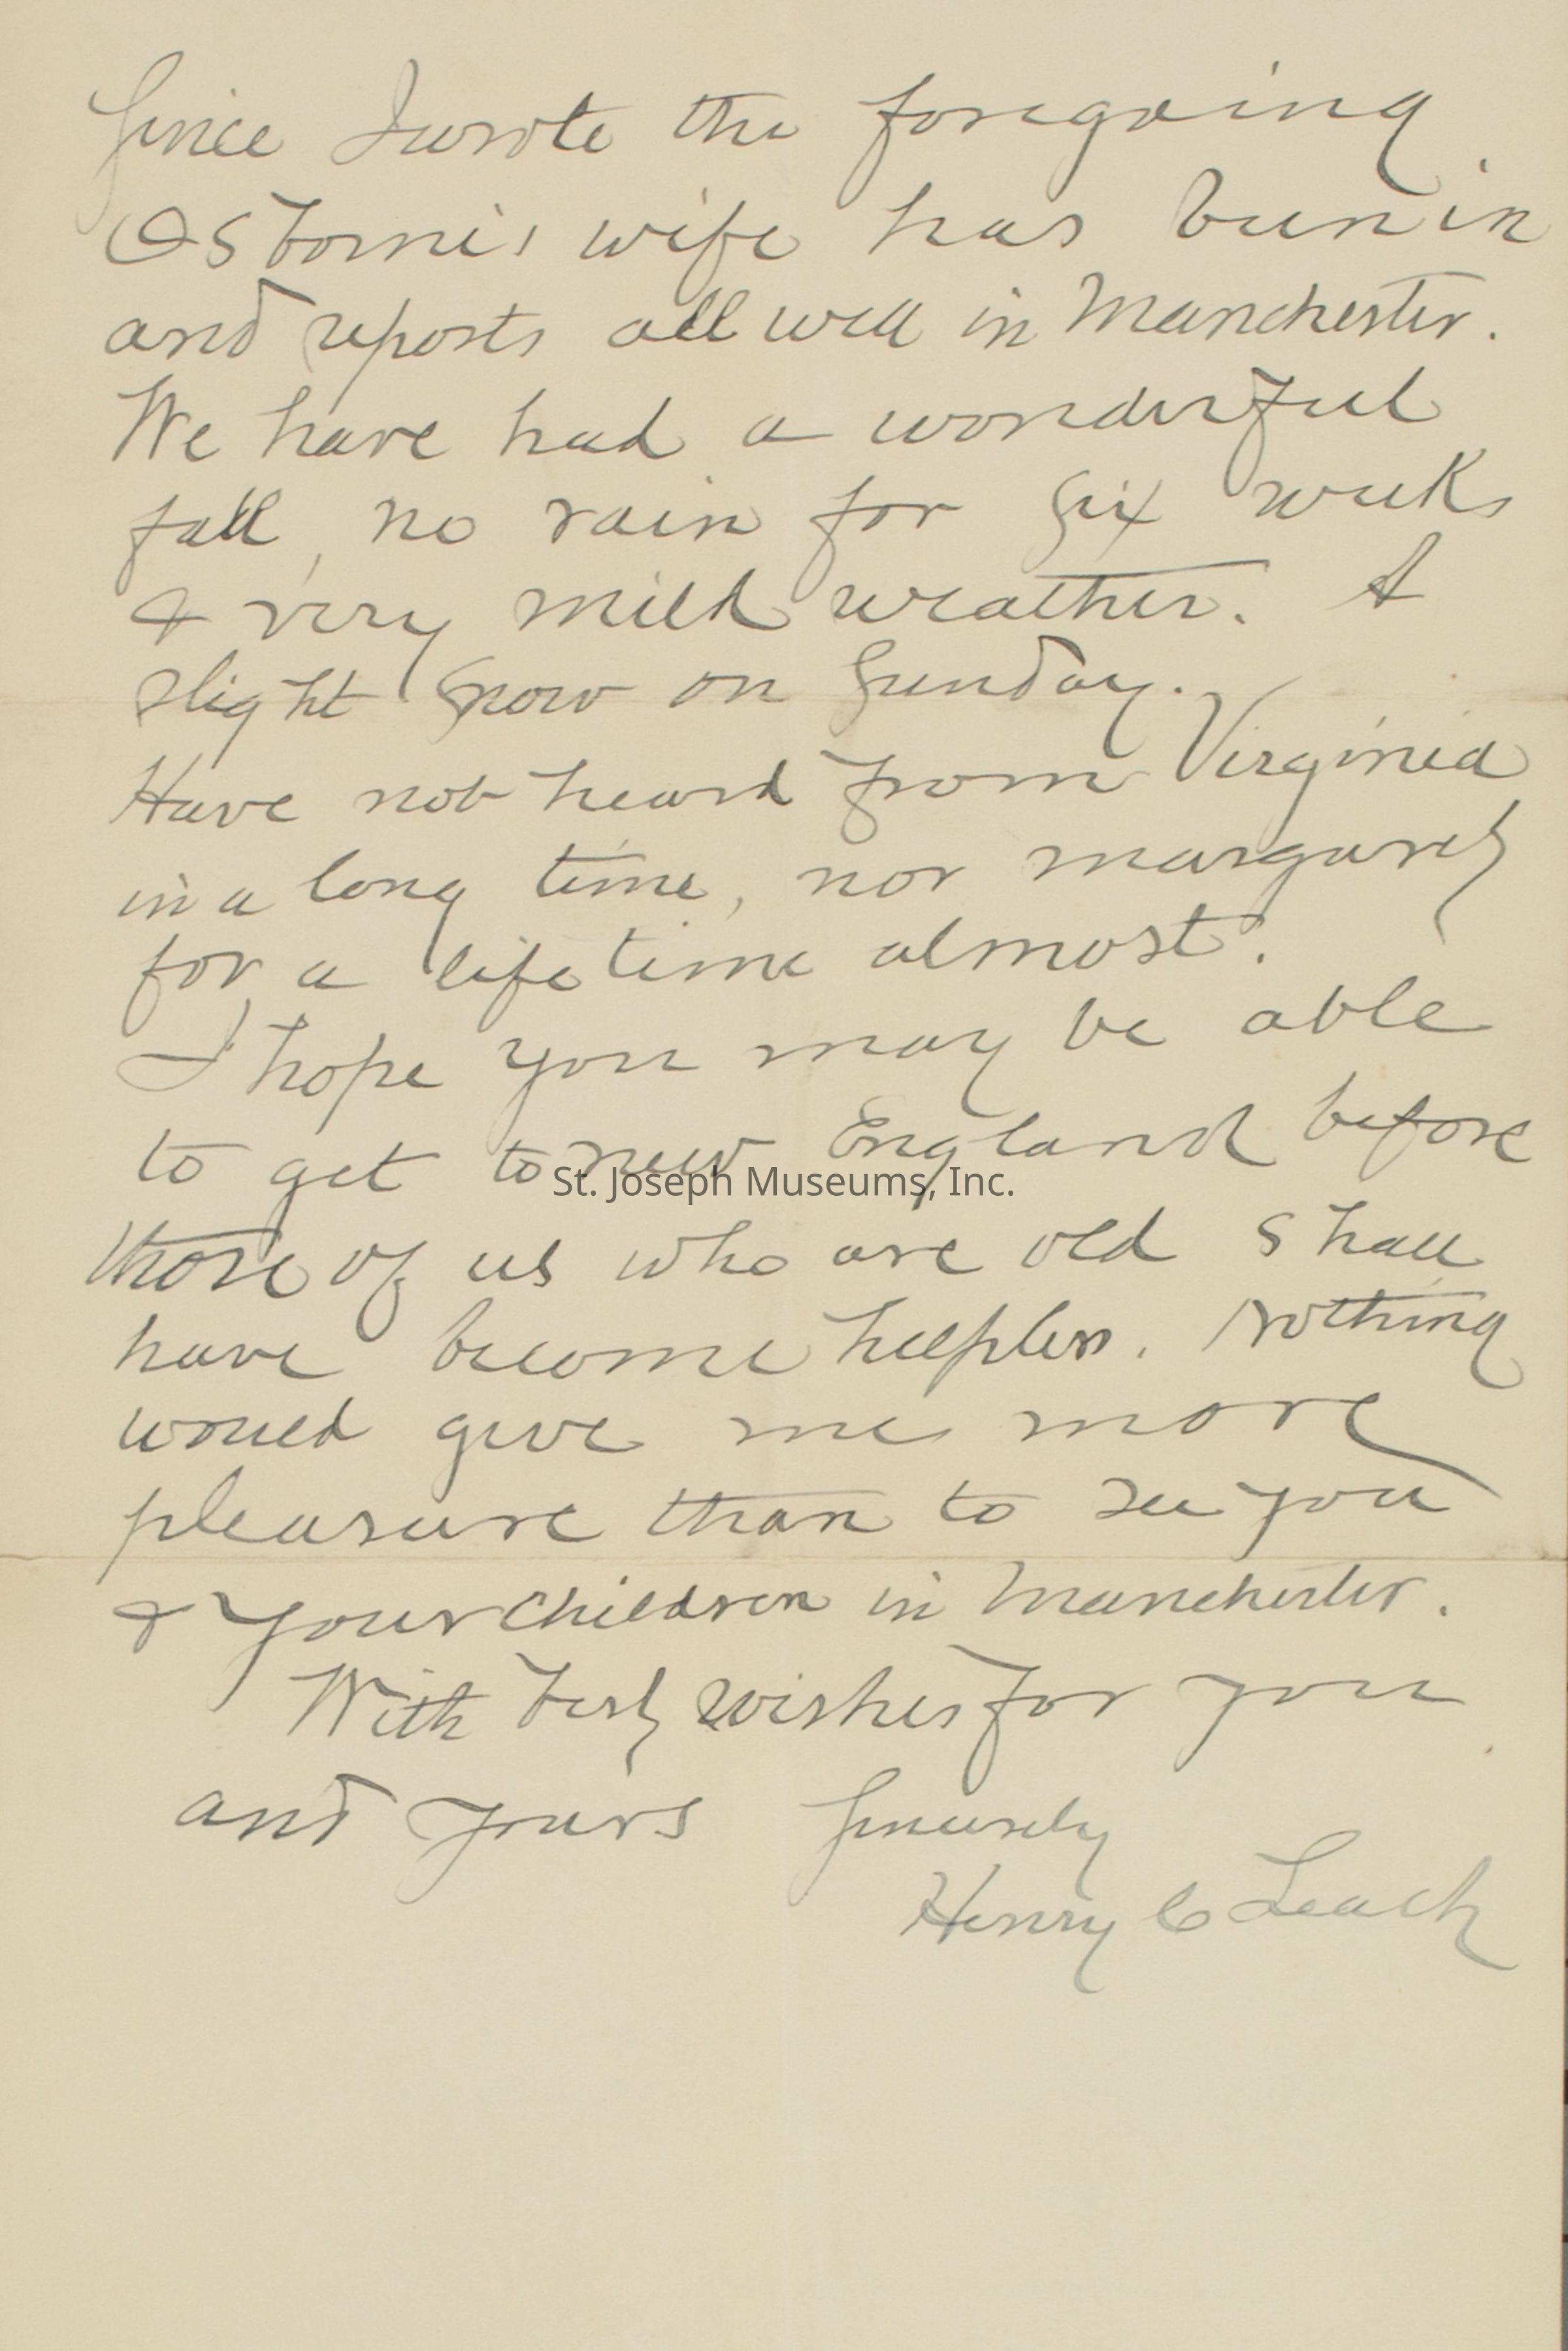 Since I wrote the foregoing
Osborne's wife has been in
and reports all well in Manchester.
We have had a wonderful
fall, no rain for six weeks
& very mild weather. A
slight snow on Sunday.
Have not heard from Virginia
in a long time, nor margaret
for a life time almost.
I hope you may be able
to get to new England before
St. Joseph Museums, Inc.
those of us who are old shall
have become helpless. Nothing
would give me more
pleasure than to see you
& your children in Manchester.
With best wishes for you
and yours Sincerely
Henry C Leach